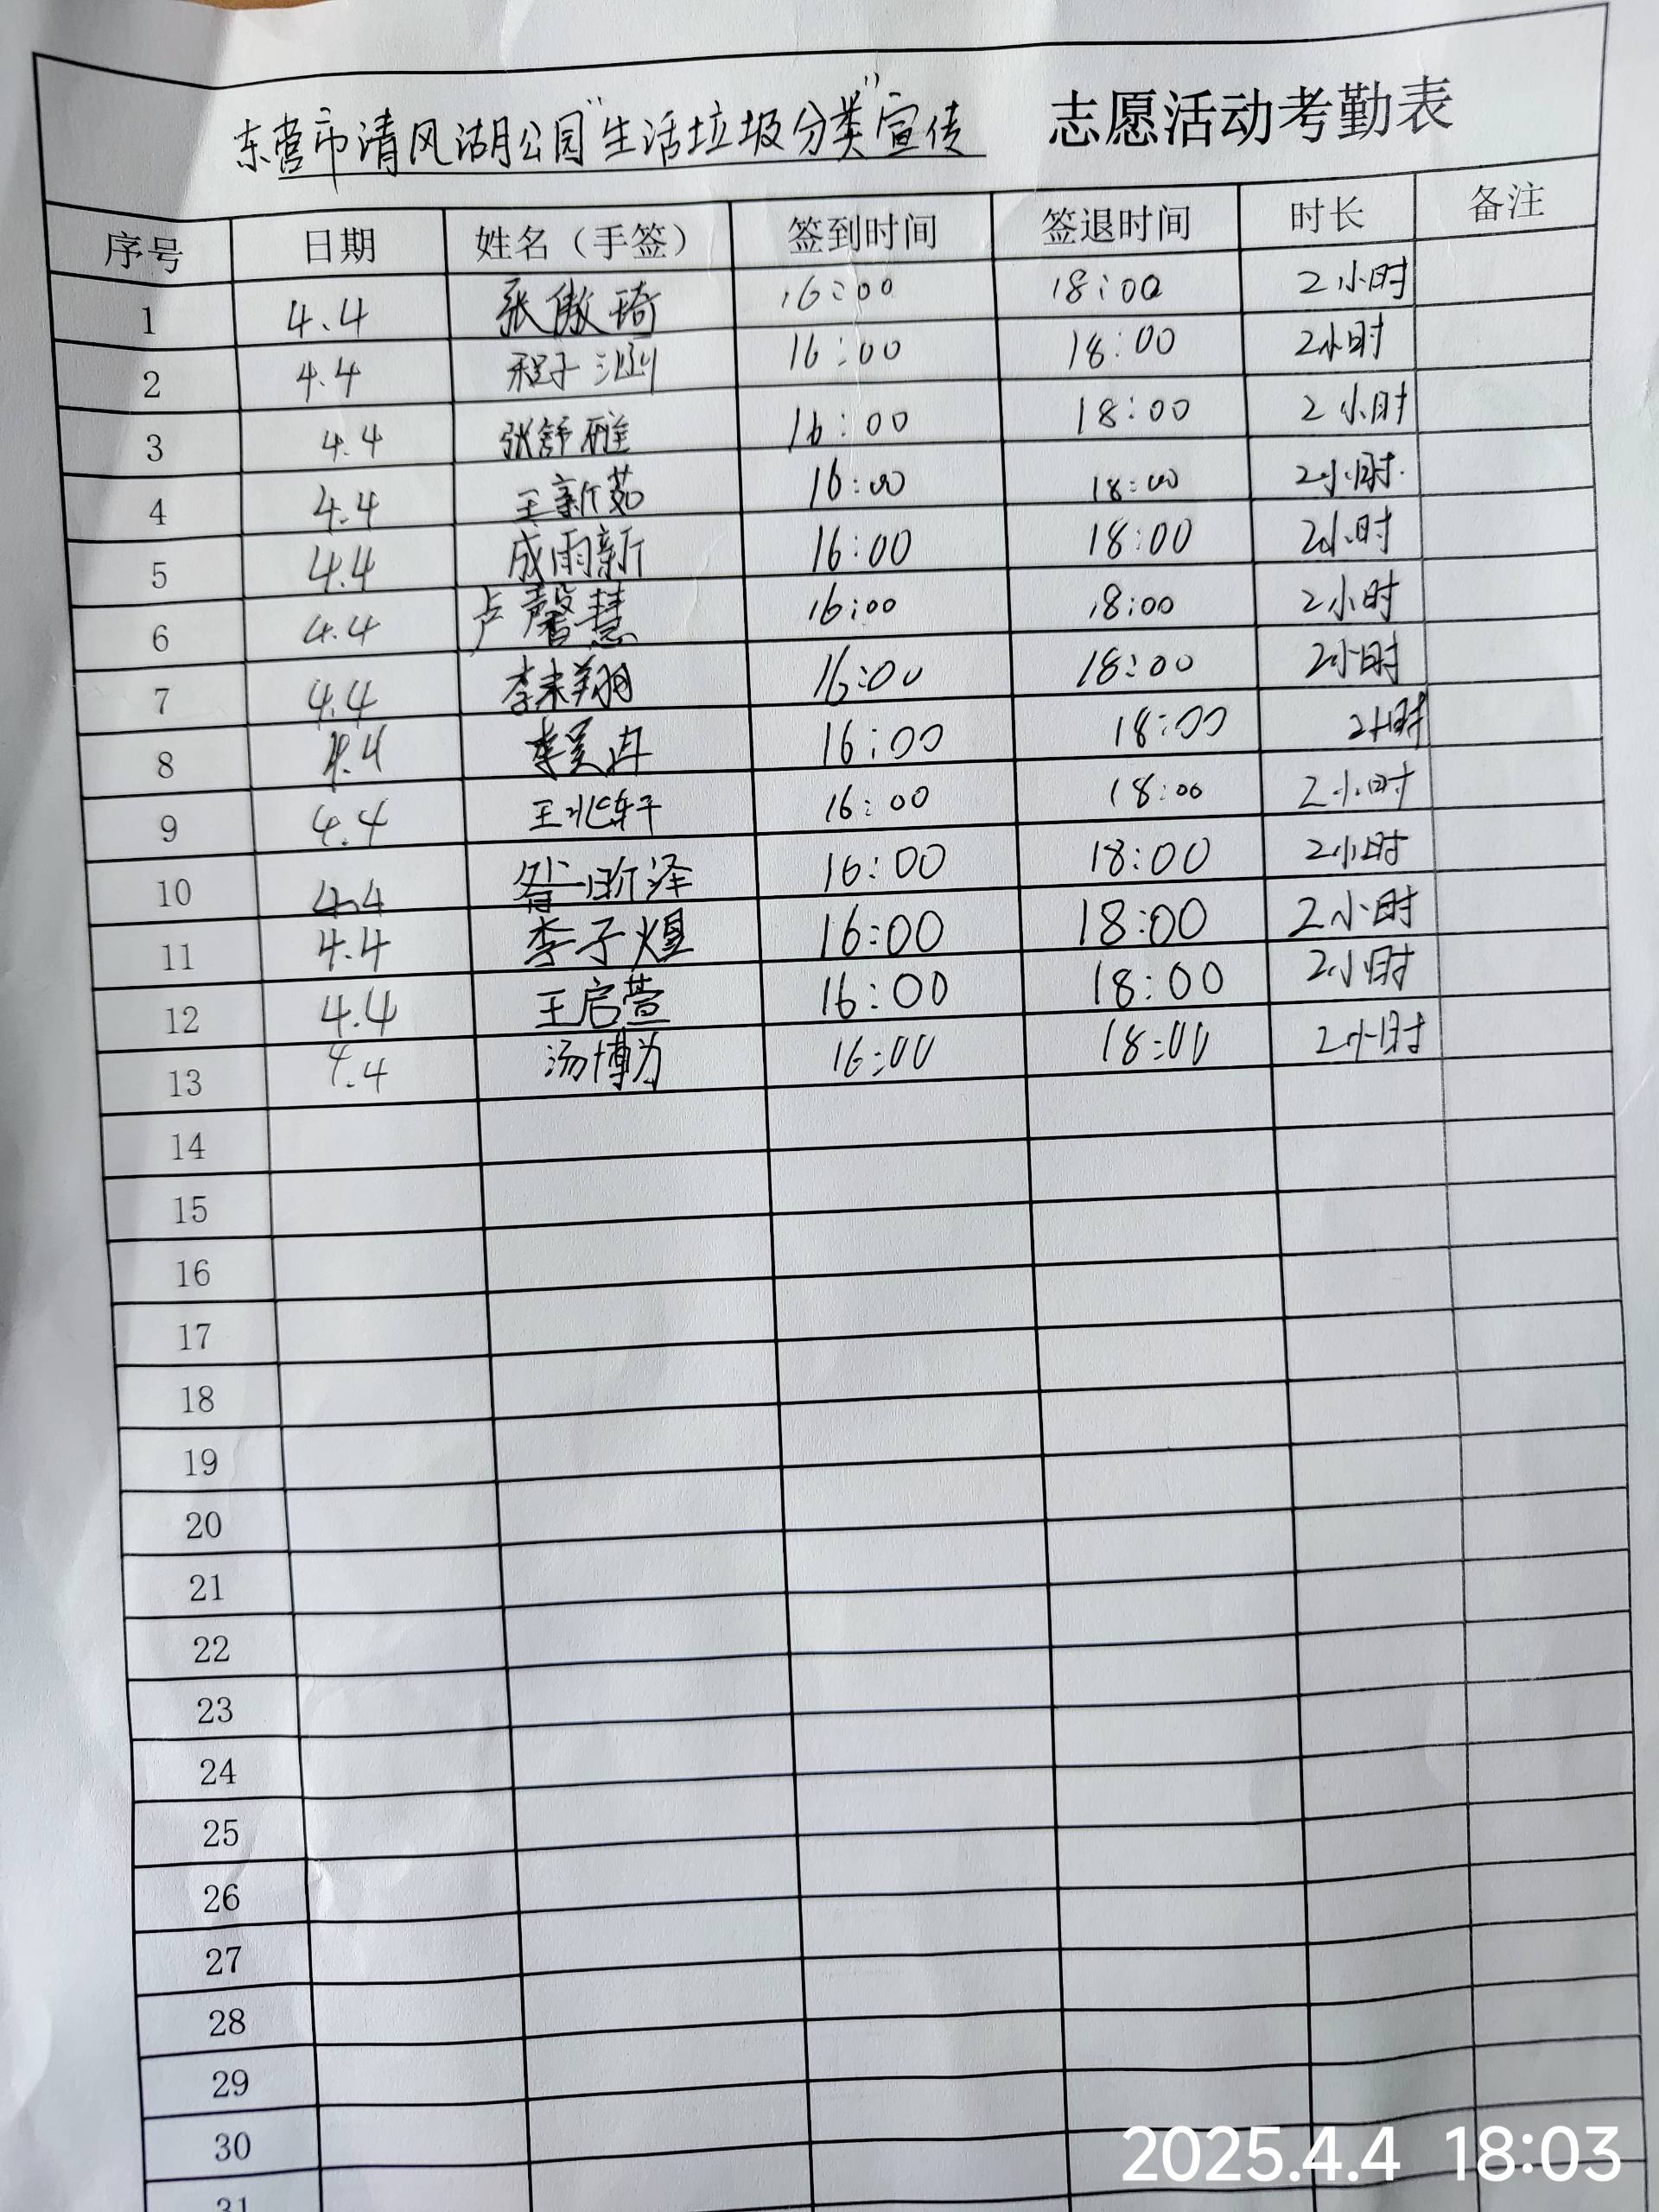 东营市清风湖公园“生活垃圾分类”宣传 志愿活动考勤表
序号 日期 姓名（手签） 签到时间 签退时间 时长 备注
1 4.4 张傲琦 16:00 18:00 2小时
2 4.4 程子渊 16:00 18:00 2小时
3 4.4 张舒雅 16:00 18:00 2小时
4 4.4 王新茹 16:00 18:00 2小时
5 4.4 成雨新 16:00 18:00 2小时
6 4.4 卢馨慧 16:00 18:00 2小时
7 4.4 李来翔 16:00 18:00 2小时
8 4.4 李昊冉 16:00 18:00 2小时
9 4.4 王兆轩 16:00 18:00 2小时
10 4.4 昕泽 16:00 18:00 2小时
11 4.4 李子煜 16:00 18:00 2小时
12 4.4 王启萱 16:00 18:00 2小时
13 4.4 汤博为 16:00 18:00 2小时
14
15
16
17
18
19
20
21
22
23
24
25
26
27
28
29
30
31
2025.4.4 18:03